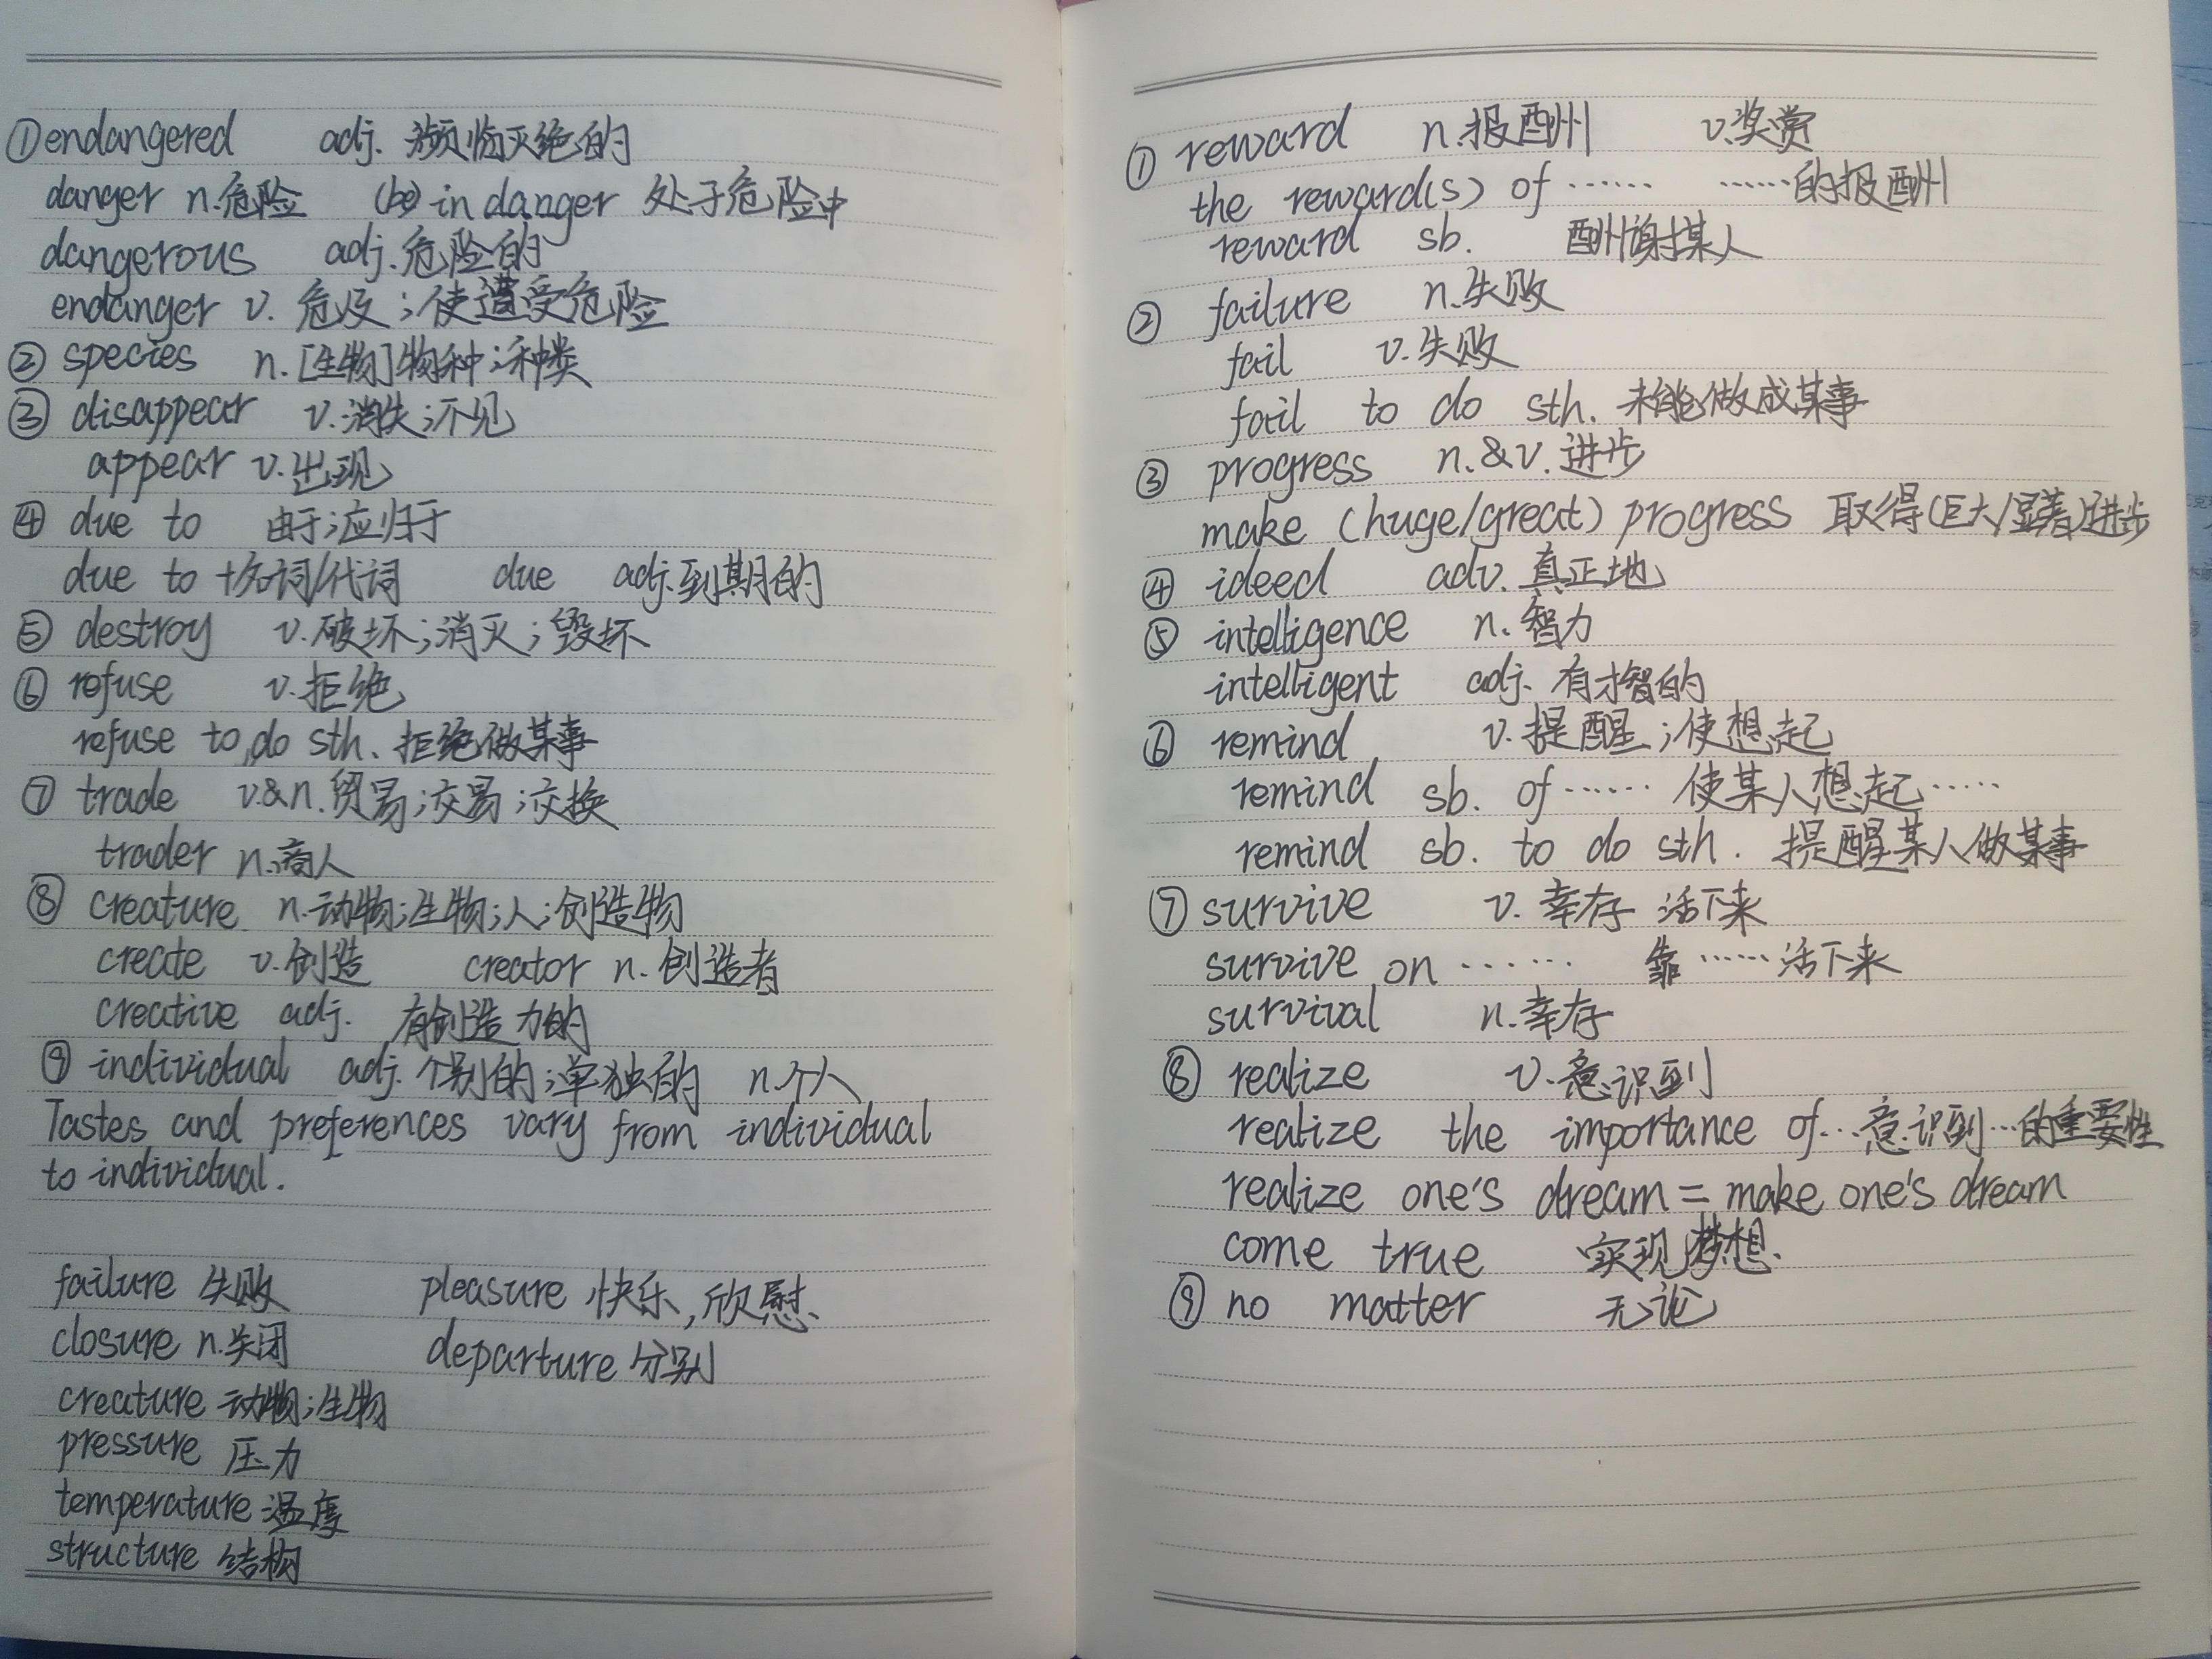 ①endangered adj. 濒临灭绝的
danger n.危险 (be) in danger 处于危险中
dangerous adj.危险的
endanger v. 危及;使遭受危险
② species n.[生物]物种;种类
③ disappear v.消失;不见
appear v.出现
④ due to 由于;应归于
due to +名词/代词 due adj.到期的
⑤ destroy v.破坏;消灭;毁坏
⑥ refuse v.拒绝
refuse to do sth. 拒绝做某事
⑦ trade v.&n.贸易;交易;交换
trader n.商人
⑧ creature n.动物;生物;人;创造物
create v.创造 creator n.创造者
creative adj. 有创造力的
⑨ individual adj.个别的;单独的 n.个人
Tastes and preferences vary from individual
to individual.
failure 失败 pleasure 快乐,欣慰
closure n.关闭 departure 分别
creature 动物;生物
pressure 压力
temperature 温度
structure 结构
① reward n.报酬 v.奖赏
the reward(s) of …… ……的报酬
reward sb. 酬谢某人
② failure n.失败
fail v.失败
fail to do sth. 未能做成某事
③ progress n.&v.进步
make (huge/great) progress 取得(巨大/显著)进步
④ ideed adv.真正地
⑤ intelligence n.智力
intelligent adj.有才智的
⑥ remind v.提醒;使想起
remind sb. of …… 使某人想起……
remind sb. to do sth. 提醒某人做某事
⑦ survive v.幸存 活下来
survive on …… 靠……活下来
survival n.幸存
⑧ realize v.意识到
realize the importance of…意识到…的重要性
realize one's dream = make one's dream
come true 实现梦想.
⑨ no matter 无论